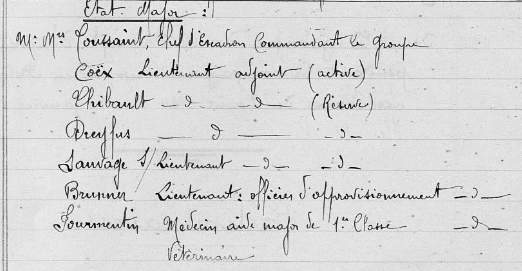 Etat Major :
M. Mrs Toussaint, Chef d'Escadron Commandant le Groupe
Coëx Lieutenant adjoint (active)
Thibault — d — d — (Réserve)
Dreyfus — d — — d —
Sauvage S/Lieutenant — d — — d —
Brunner Lieutenant : officier d'approvisionnement — d —
Fourmentin Médecin aide major de 1re Classe — d —
Vétérinaire